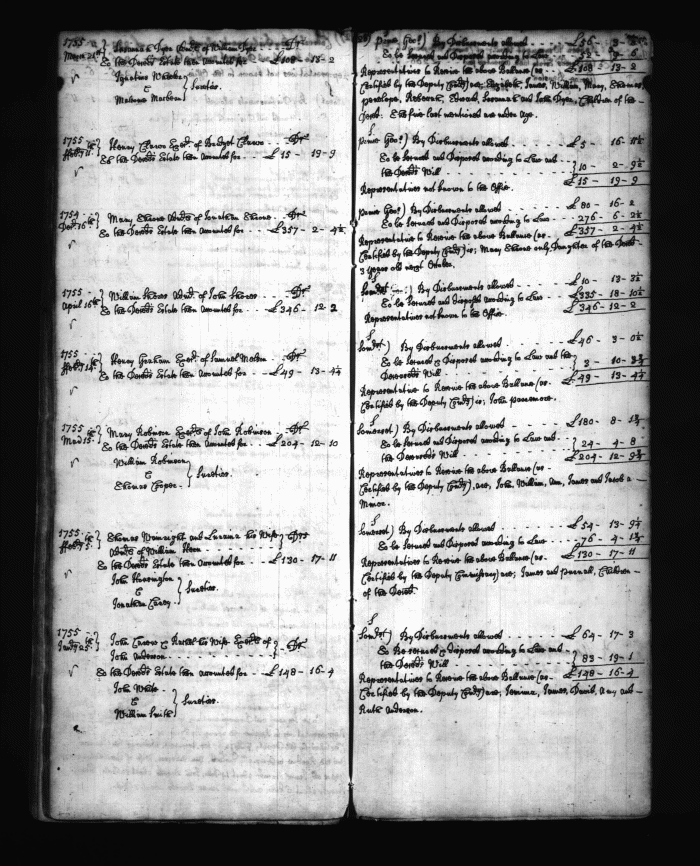 1755
March 21st } Tyre Admx of William Tyre Dr
To the Deceds Estate then accounted for £108 - 13 - 2
Ignatius Wheeler
&
} Sureties.
1755
Febry 11th } Henry Clarvo Exer of Bridget Clarvo Dr
To the Deceds Estate then accounted for £15 - 19 - 9
1754
Decr 16th } Mary Admx of Jonathan Dr
To the Deceds Estate then accounted for £357 - 2 - 4½
1755
April 16th } William Admr of John Dr
To the Deceds Estate then accounted for £346 - 12 - 2
1755
Febry 14th } Henry Exer of Samuel Dr
To the Deceds Estate then accounted for £49 - 13 - 4¼
1755
} Mary Robinson of John Robinson Dr
To the Deceds Estate then accounted for £204 - 12 - 10
William Robinson
&
} Sureties
1755
Febry 5th } and his Wife
Admx of William } Drs
To the Deceds Estate then accounted for £130 - 17 - 11
John
&
Jonathan } Sureties.
1755
25th } John & Rachel his Wife Execs of
John Anderson } Dr
To the Deceds Estate then accounted for £148 - 16 - 4
John White
&
William Smith } Sureties.
Prince Geos) By Disbursements allowed £56 - 3 -
To be Served and Disposed according to Law
£108 - 13 - 2
Representatives to Receive the above Ballance (as
Certified by the Deputy Comry) are, Elizabeth, James, William, Mary,
Penelope, Rebecca, Edward, and John Tyre, Children of the
Deced: The five last mentioned are under age.
Prince Geos) By Disbursements allowed £5 - 16 - 11½
To be Served and Disposed according to Law and
the Deceds Will } 10 - 2 - 9½
£15 - 19 - 9
Representatives not known to the Office.
Prince Geos) By Disbursements allowed £80 - 16 - 2
To be Served and Disposed according to Law 276 - 6 - 2½
£357 - 2 - 4½
Representative to Receive the above Ballance (as
Certified by the Deputy Comry) is; Mary only Daughter of the Deced
3 Years old next October.
By Disbursements allowed £10 - 13 - 3½
To be Served and Disposed according to Law £335 - 18 - 10½
£346 - 12 - 2
Representatives not known to the Office.
Somset) By Disbursements allowed £46 - 3 - 0½
To be Served & Disposed according to Law and the
Deceaseds Will } 3 - 10 - 3¾
£49 - 13 - 4¼
Representative to Receive the above Ballance (as
Certified by the Deputy Comry) is; John
Somerset) By Disbursements allowed £180 - 8 - 1¾
To be Served & Disposed according to Law and
the Deceaseds Will } 24 - 4 - 8
£204 - 12 - 9¾
Representatives to Receive the above Ballance (as
Certified by the Deputy Comry), are, John, William, Ann, James and Jacob a
Minor.
Somerset) By Disbursements allowed £54 - 13 - 9¾
To be Served and Disposed according to Law 76 - 4 - 1¼
£130 - 17 - 11
Representatives to Receive the above Ballance (as
Certified by the Deputy Commissary) are; James and Children
of the Deced.
By Disbursements allowed £64 - 17 - 3
To be Served & Disposed according to Law and
the Deceds Will } 83 - 19 - 1
£148 - 16 - 4
Representatives to Receive the above Ballance (as
Certified by the Deputy Comry) are, Jemima, James, David, Amy and
Ruth Anderson.